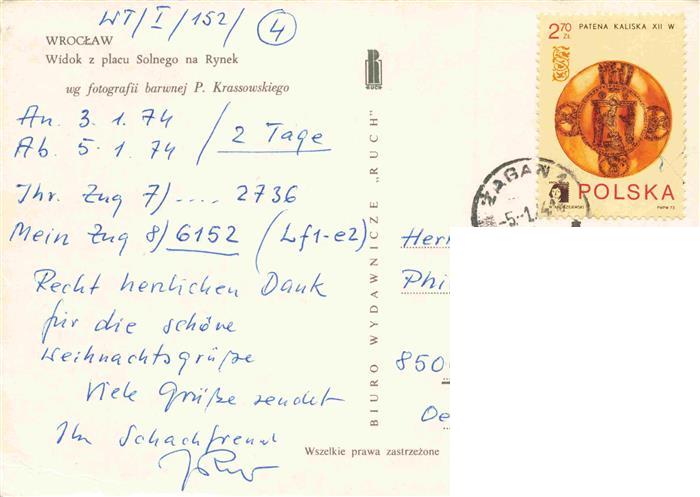 WT/I/152/ 4
WROCŁAW
Widok z placu Solnego na Rynek
wg fotografii barwnej P. Krassowskiego
An. 3.1.74
Ab. 5.1.74 / 2 Tage
Ihr. Zug 7) .... 2736
Mein Zug 8) 6152 (Lf1-e2)
Recht herzlichen Dank
für die schöne
Weihnachtsgrüße
Viele Grüße sendet
Ihr Schachfreund
RUCH
BIURO WYDAWNICZE „RUCH"
Wszelkie prawa zastrzeżone
PATENA KALISKA XII W
2.70 ZŁ
POLSKA
PWPW 73
ŻAGAŃ 1
-5.-1.74
Herr
Phi
850
Oe